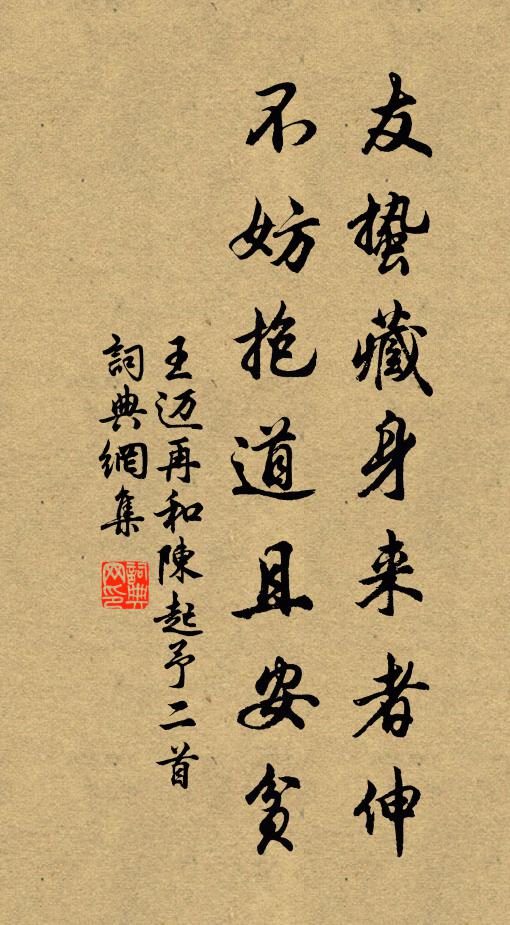 友蛰藏身来者伸
不妨抱道且安贫
王迈再和陳起予二首
詞典網集
詞典网印